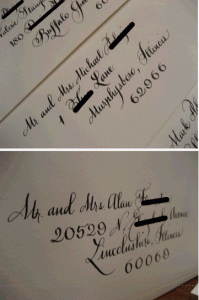 180
Buffalo
Mr. and Mrs. Michael
1 Lane
Murphysboro, Illinois
62966
Mark
Mr. and Mrs. Alan
20529 N. Avenue
Lincolnshire, Illinois
60069